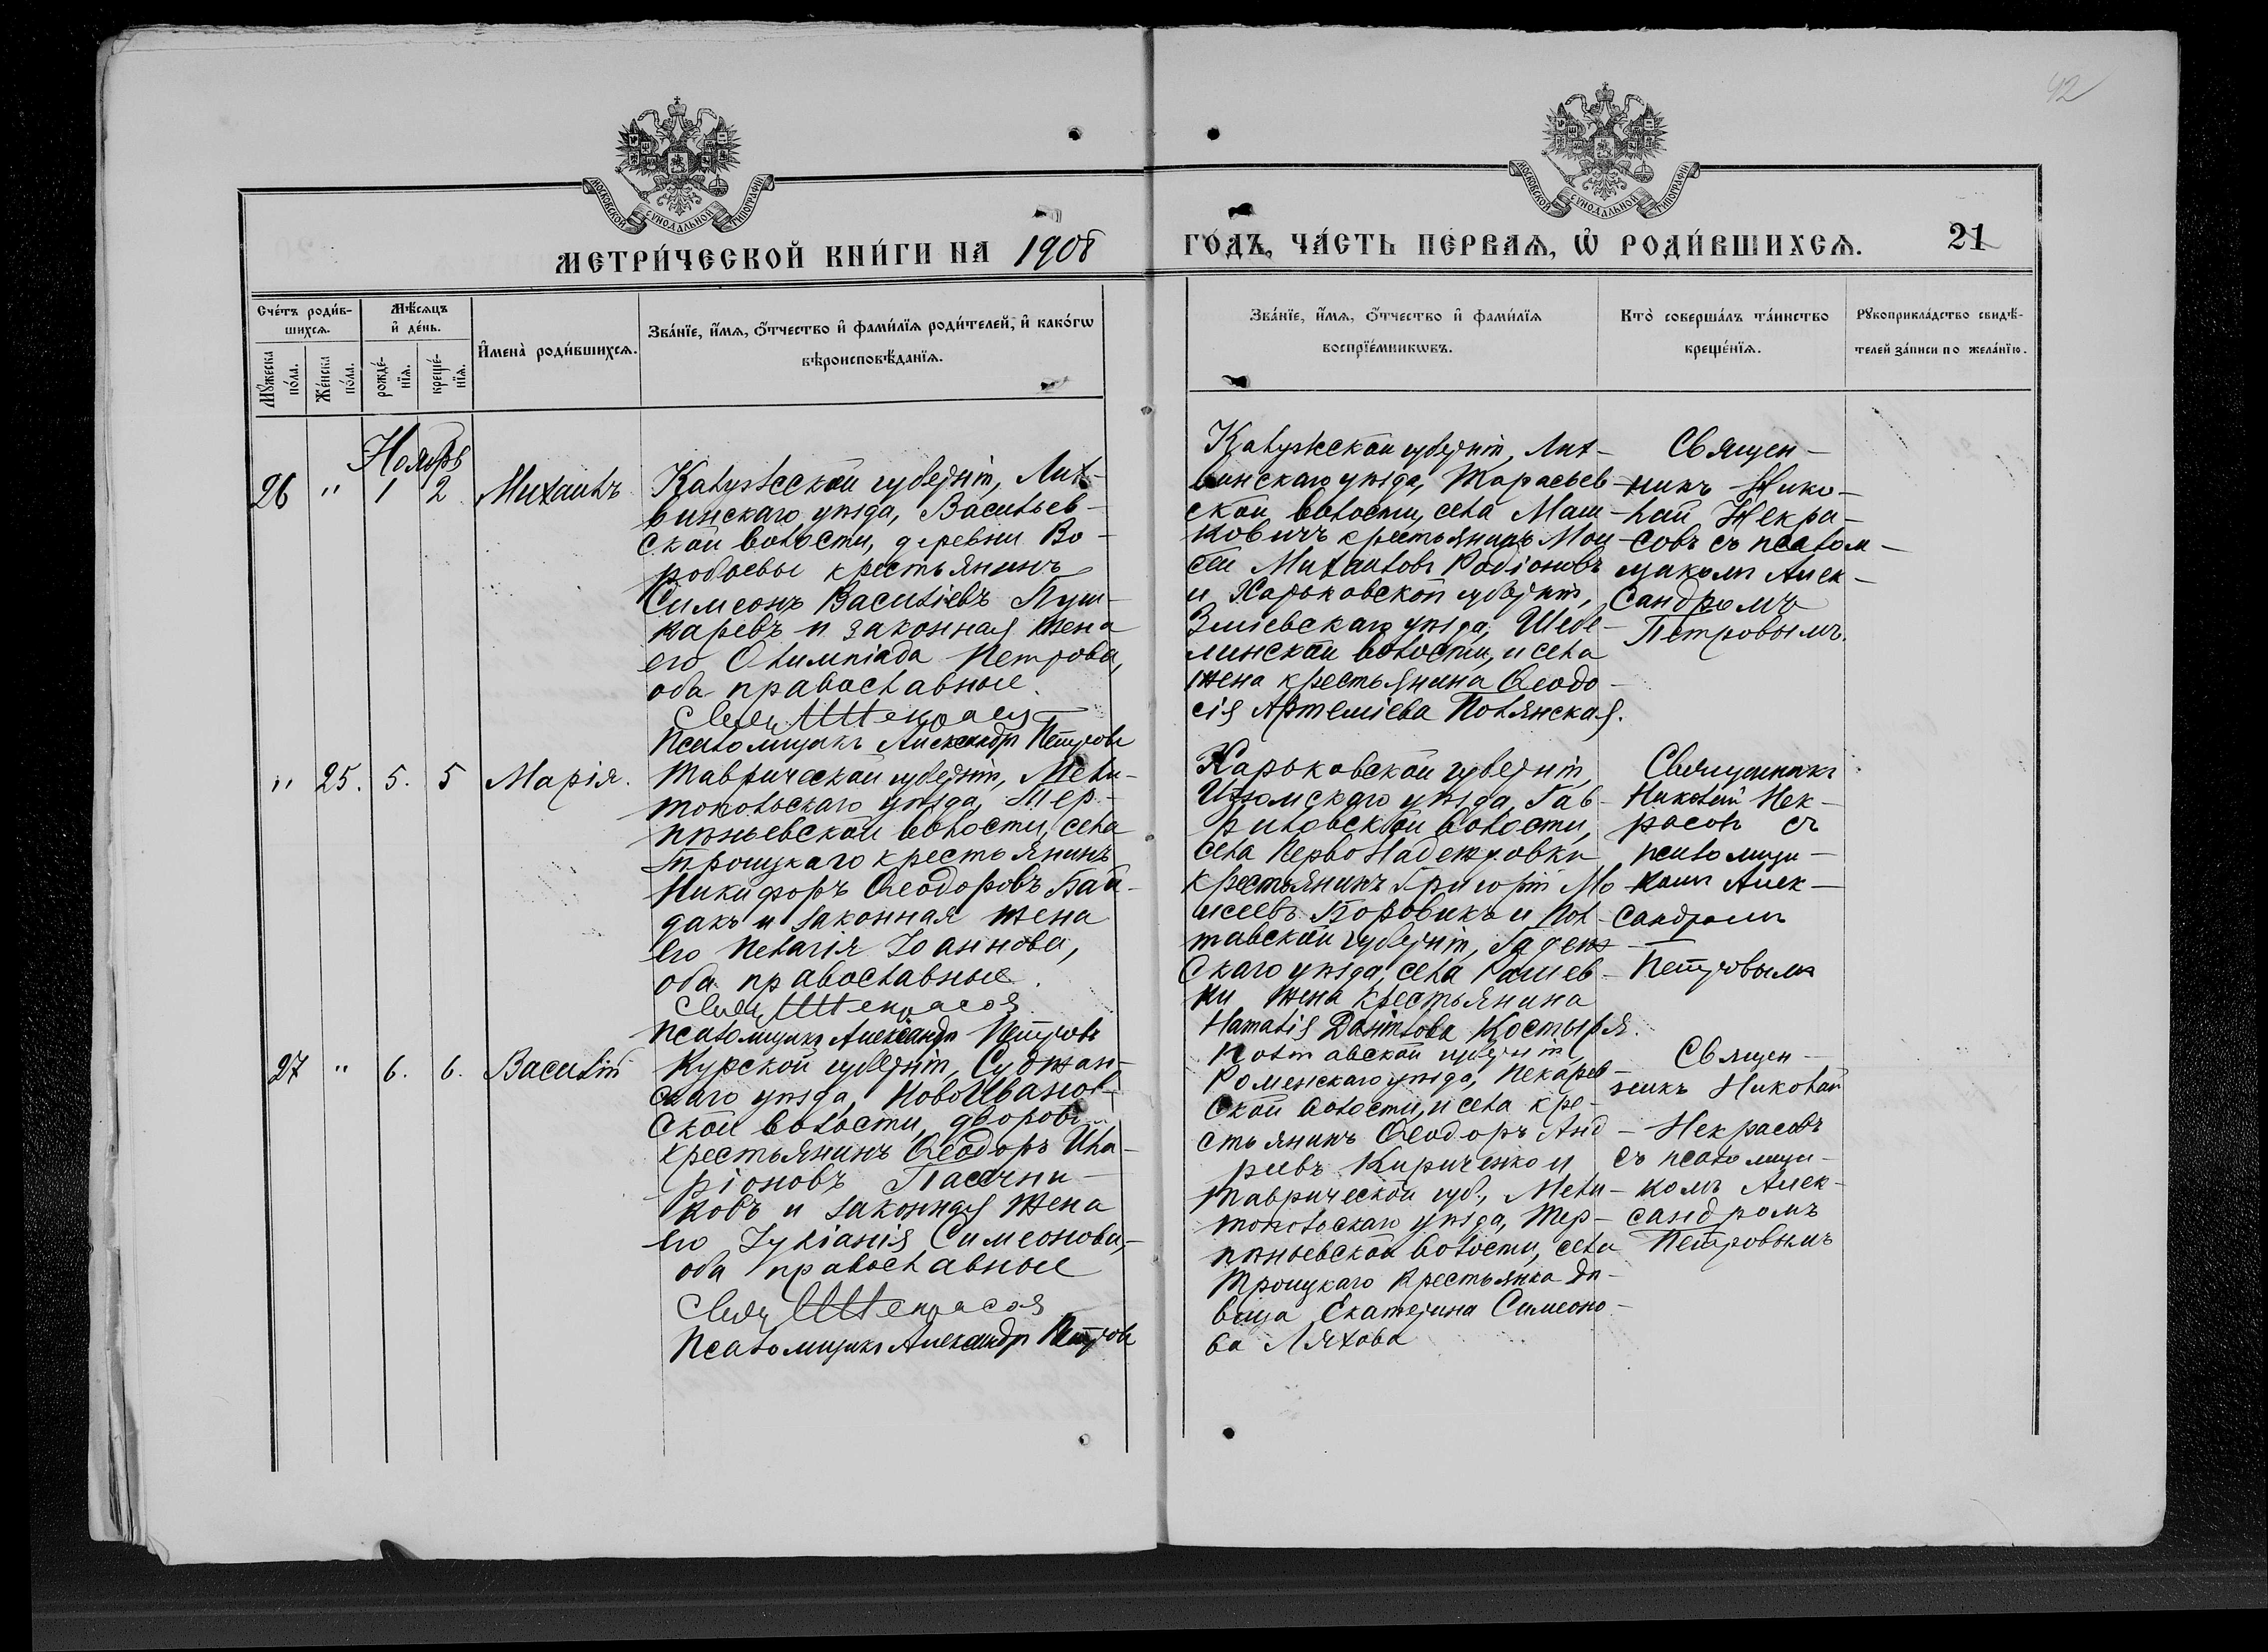 42
МОСКОВСКОЙ СѴНОДАЛЬНОЙ ТИПОГРАФІИ
МОСКОВСКОЙ СѴНОДАЛЬНОЙ ТИПОГРАФІИ
МЕТРИ́ЧЕСКОЙ КНИ́ГИ НА 1908
ГО́ДЪ, ЧА́СТЬ ПЕ́РВАѦ, Ѡ҆ РОДИ́ВШИХСѦ. 21
Сче́тъ роди́в-
шихсѧ.
Мꙋ́жеска по́ла.
Же́нска по́ла.
Мѣ́сѧцъ
и҆ де́нь.
рожде́-
нїѧ.
креще́-
нїѧ.
И҆мена̀ роди́вшихсѧ.
Зва́нїе, и҆́мѧ, ѻ҆́тчество и҆ фами́лїѧ роди́телей, и҆ како́гѡ
вѣроисповѣ́данїѧ.
Зва́нїе, и҆́мѧ, ѻ҆́тчество и҆ фами́лїѧ
воспрїе́мникѡвъ.
Кто̀ соверша́лъ та́инство
креще́нїѧ.
Рꙋкоприкла́дство свидѣ́-
телей за́писи по жела́нїю.
Ноябрь
26 " 1 2 Михаилъ
Калужской губерніи, Лих-
винскаго уѣзда, Васильев-
ской волости, деревни Во-
робьевы крестьянинъ
Симеонъ Василіевъ Пуш-
каревъ и законная жена
его Олимпіада Петрова,
оба православные.
Псаломщикъ Александръ Петровъ
Калужской губерніи, Лих-
винскаго уѣзда, Тарасьев-
ской волости, села Маш-
ковичъ крестьянинъ Мои-
сей Михаиловъ Родіоновъ
и Харьковской губерніи,
Зміевскаго уѣзда, Шебе-
линской волости, и села
жена крестьянина Ѳеодо-
сія Артеміева Полянская.
Священ-
никъ Нико-
лай Некра-
совъ съ псалом-
щикомъ Алек-
сандромъ
Петровымъ.
" 25. 5. 5 Марія.
Таврической губерніи, Мели-
топольскаго уѣзда, Тер-
пѣньевской волости, села
Троицкаго крестьянинъ
Никифоръ Ѳеодоровъ Бай-
дакъ и законная жена
его Пелагія Іоаннова,
оба православные.
Псаломщикъ Александръ Петровъ
Харьковской губерніи,
Изюмскаго уѣзда, Гав-
риловской волости,
села ПервоНадеждовки
крестьянинъ Григорій Мо-
исеевъ Боровикъ и Пол-
тавской губерніи, Гадяч-
скаго уѣзда, села Рашев-
ки жена крестьянина
Наталія Даніилова Костыря.
Священникъ
Николай Нек-
расовъ съ
псаломщи-
комъ Алек-
сандромъ
Петровымъ
27 " 6. 6. Василій
Курской губерніи, Суджан-
скаго уѣзда, НовоИванов-
ской волости, дворовъ
крестьянинъ Ѳеодоръ Ила-
ріоновъ Пасечни-
ковъ и законная жена
его Іуліанія Симеонова,
оба православные
Псаломщикъ Александръ Петровъ
Полтавской губерніи
Роменскаго уѣзда, Пекарев-
ской волости, и села кре-
стьянинъ Ѳеодоръ Анд-
реевъ Кириченко и
Таврической губ., Мели-
топольскаго уѣзда, Тер-
пѣньевской волости, села
Троицкаго крестьянка дѣ-
вица Екатерина Симеоно-
ва Ляхова
Священ-
никъ Николай
Некрасовъ
съ псаломщи-
комъ Алек-
сандромъ
Петровымъ